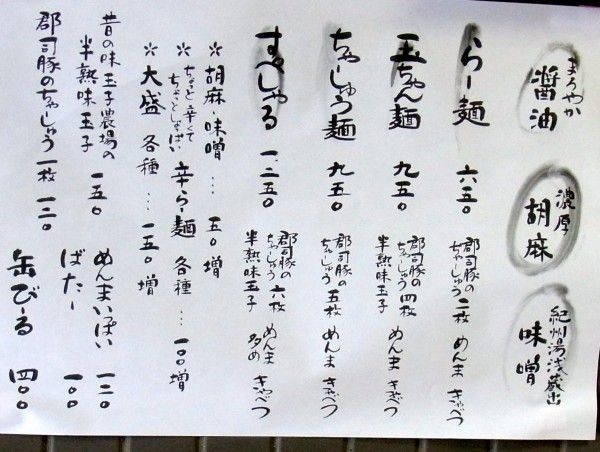 まろやか
醤油
濃厚
胡麻
紀州湯浅蔵出
味噌
らー麺 六五〇
郡司豚の
ちゃーしゅう 二枚 めんま きゃべつ
玉ちゃん麺 九五〇
郡司豚の
ちゃーしゅう 四枚
半熟味玉子 めんま きゃべつ
ちゃーしゅう麺 九五〇
郡司豚の
ちゃーしゅう 五枚 めんま きゃべつ
すぺしゃる 一、二五〇
郡司豚の
ちゃーしゅう 六枚
半熟味玉子 めんま 多め きゃべつ
＊胡麻・味噌… 五〇増
ちょっと辛くて
ちょっとしょっぱい
＊辛らー麺 各種… 一〇〇増
＊大盛 各種… 一五〇増
昔の味玉子農場の
半熟味玉子 一五〇
郡司豚のちゃーしゅう 一枚 一二〇
めんまいっぱい 一二〇
ばたー 一〇〇
缶びーる 四〇〇